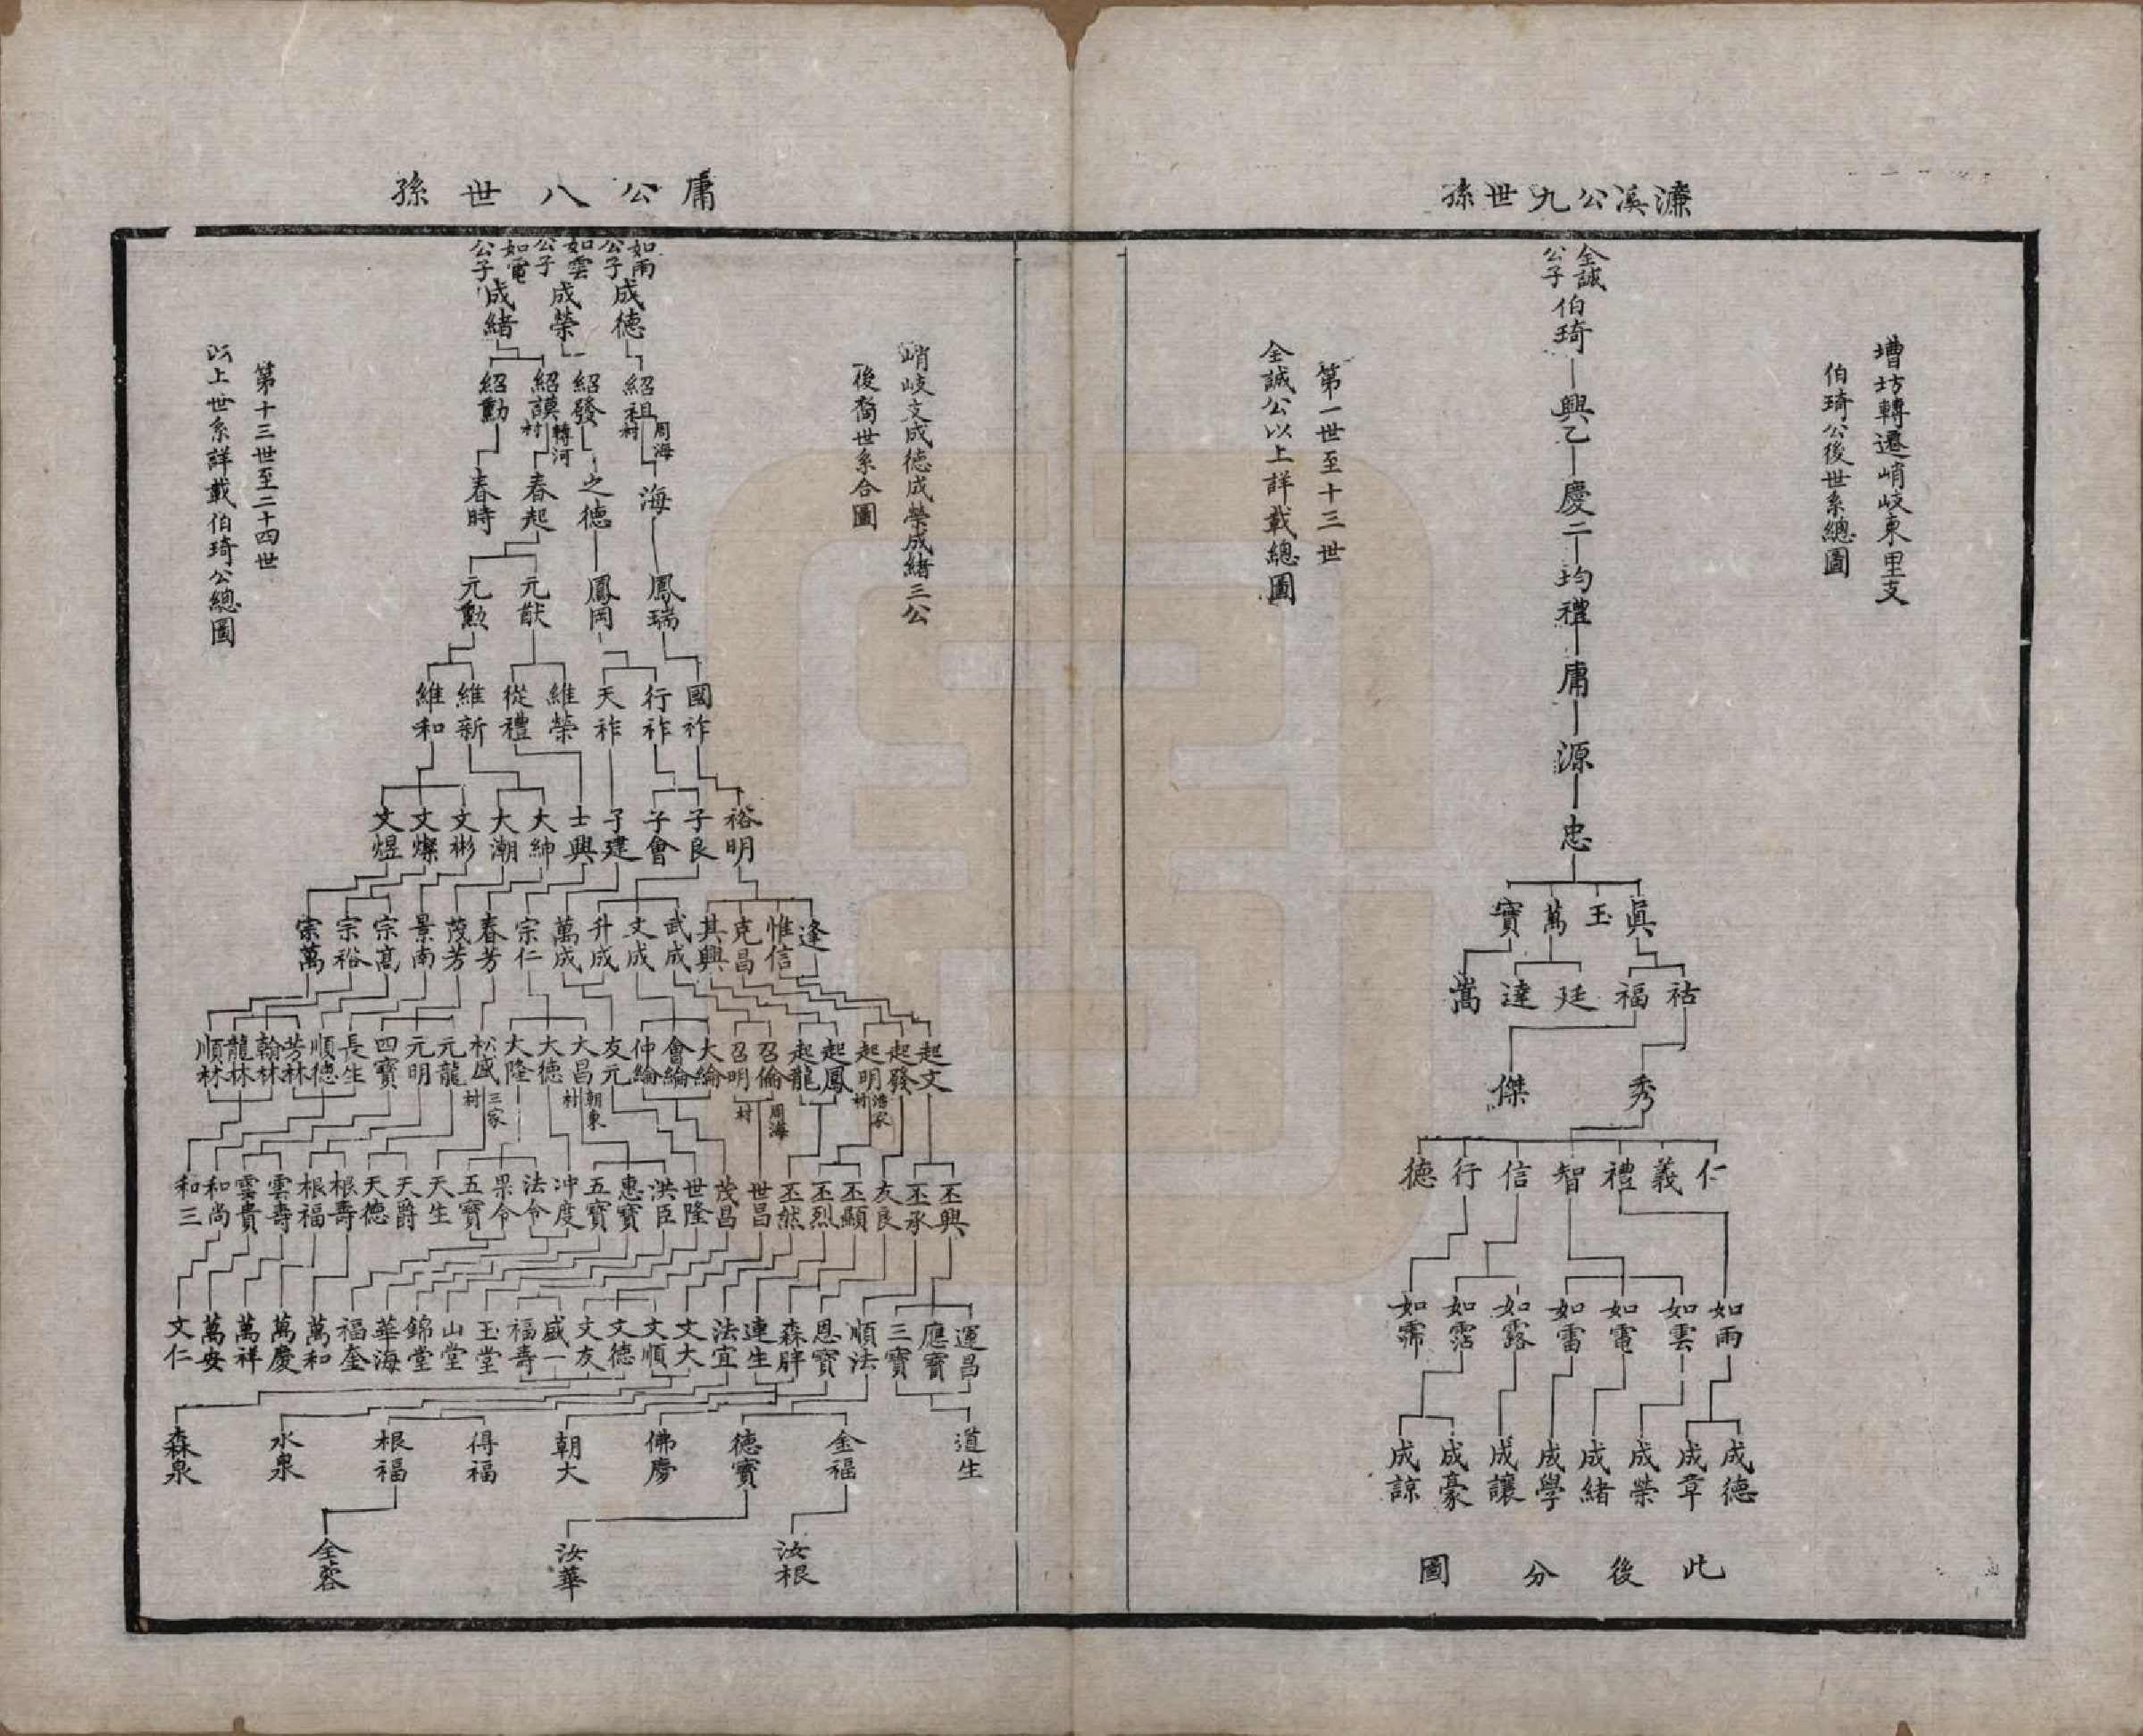 濂溪公九世孫
墰坊轉遷峭岐東里支
伯琦公後世系總圖
第一世至十三世
全誠公以上詳載總圖
全誠公子
伯琦
興乙
慶二
均禮
庸
源
忠
眞 玉 萬 寶
祜 福 廷 達 嵩
秀 傑
仁 義 禮 智 信 行 德
如雨 如雲 如電 如雷 如露 如霑 如霈
成德 成章 成榮 成緒 成學 成讓 成豪 成諒
此後分圖
庸公八世孫
峭岐支成德成榮成緒三公
後裔世系合圖
第十三世至二十四世
以上世系詳載伯琦公總圖
如雨公子 如雲公子 如電公子
成德 成榮 成緒
紹祖 紹發 紹謨 紹勳
周海村 轉河村
海 之德 春起 春時
鳳瑞 鳳岡 元猷 元勳
國祚 行祚 天祚 維榮 從禮 維新 維和
裕明 子良 子會 子建 士興 大紳 大潮 文彬 文燦 文煜
逢 惟信 克昌 其興 武成 文成 升成 萬成 宗仁 春芳 茂芳 景南 宗高 宗裕 宗萬
起文 起發 起明 起鳳 起龍 召倫 召明 大綸 會綸 仲綸 友元 大昌 大德 大隆 松盛 元龍 元明 四寶 長生 順德 芳林 翰林 龍林 順林
周海村 朝東村 三家村
丕興 丕承 友良 丕顯 丕烈 丕然 世昌 茂昌 世隆 洪臣 惠寶 五寶 冲度 法令 果令 五寶 天生 天爵 天德 根壽 根福 雲壽 雲貴 和尚 和三
運昌 應寶 三寶 順法 恩寶 森胖 連生 法宜 文大 文順 文德 文友 盛一 福壽 玉堂 山堂 錦堂 華海 福奎 萬和 萬慶 萬祥 萬安 文仁
道生 金福 德寶 佛慶 朝大 得福 根福 水泉 森泉
汝根 汝華 全蓉